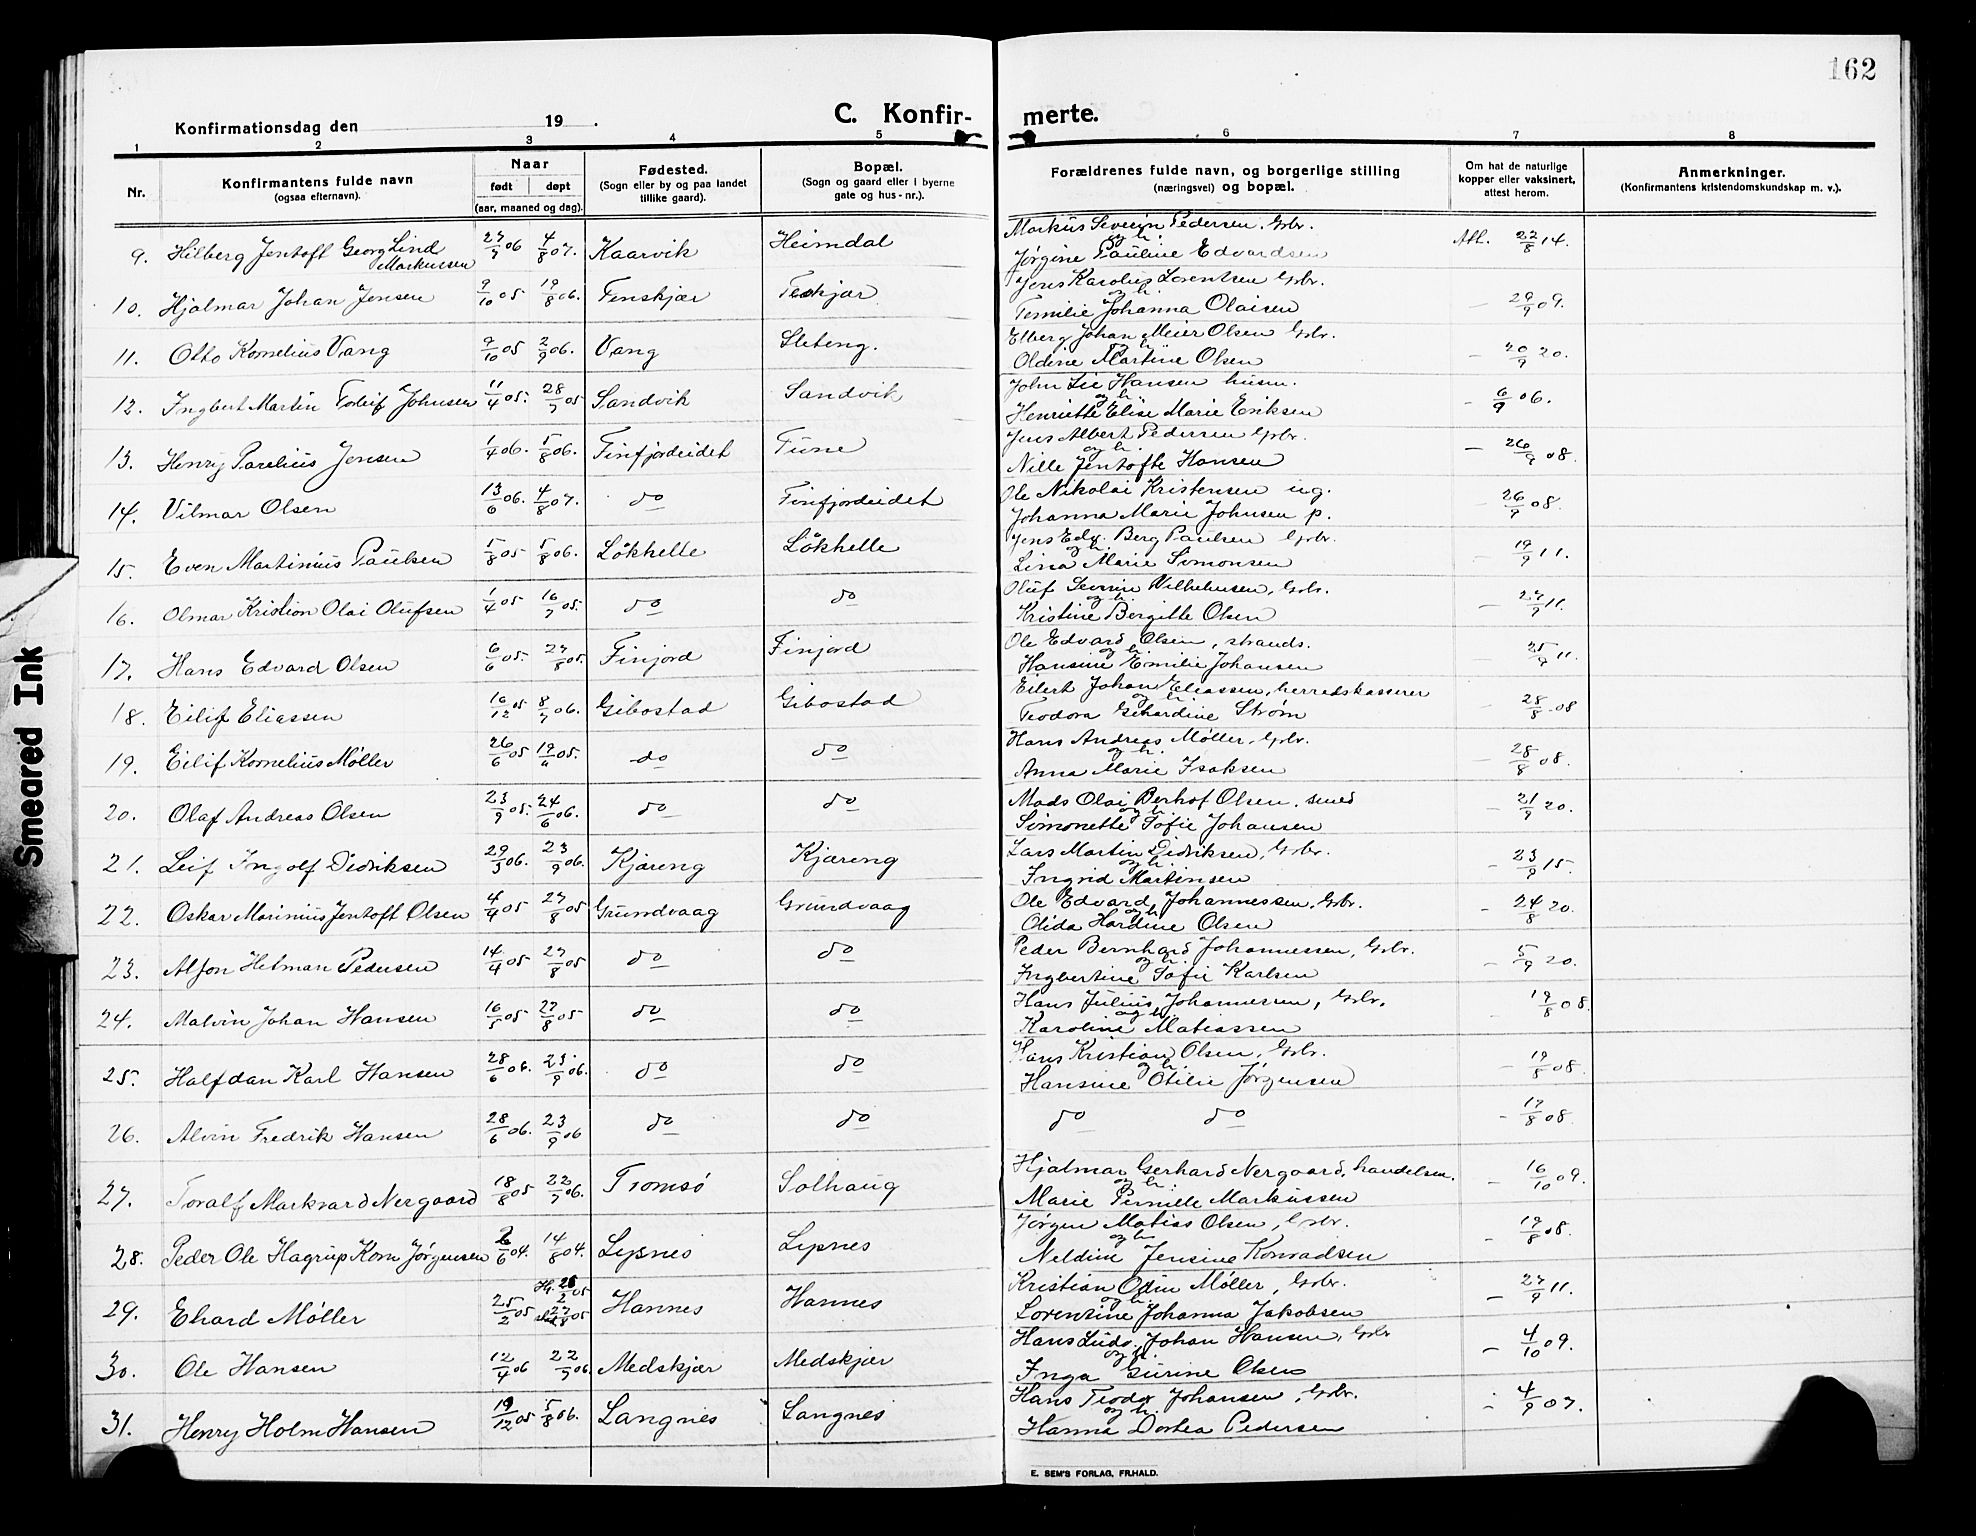 162
C. Konfirmerte.
Konfirmationsdag den 19 .
1 2 3 4 5 6 7 8
Nr. Konfirmantens fulde navn (ogsaa efternavn). Naar født døpt (aar, maaned og dag). Fødested. (Sogn eller by og paa landet tillike gaard). Bopæl. (Sogn og gaard eller i byerne gate og hus-nr.). Forældrenes fulde navn, og borgerlige stilling (næringsvei) og bopæl. Om hat de naturlige kopper eller vaksinert, attest herom. Anmerkninger. (Konfirmantens kristendomskundskap m. v.).
9. Hilberg Jentoft Georg Lind Markussen 27/7 06 4/8 07. Kaarvik Heimdal Markus Severin Pedersen. Gbr. og h. Jørgine Pauline Edvardsen Att. 22/8 14.
10. Hjalmar Johan Jensen 9/10 05 19/8 06. Finskjær Jens Karolus Lorentsen Gbr. og h. Johanna Olaisen – 29/9 09.
11. Otto Kornelius Vang 9/10 05 2/9 06. Vang Sleteng. Elberg Johan Meier Olsen Gbr. og h. Oldine Martine Olsen – 20/9 20.
12. Ingbert Martin Johnsen 11/4 05. 28/7 05 Sandvik Sandvik John Lie Hansen husm. og h. Henriette Elise Marie Eriksen – 6/9 06.
13. Henry Parelius Jensen 1/4 06. 5/8 06. Finfjordeidet Tune Jens Albert Pedersen Gbr. og h. Nille Jentofte Hansen – 26/9 08.
14. Vilmar Olsen 13/6 06. 4/8 07. do Finfjordeidet Ole Nikolai Kristensen ug. Johanna Marie Johnsen p. – 26/9 08.
15. Even Martinius Paulsen 5/8 05 5/8 06. Løkhelle Løkhelle Jens Edv. Berg Paulsen Gbr. og h. Lina Marie Simonsen – 19/9 11.
16. Olmar Kristian Olai Olufsen 1/4 05 16/7 05. do do Oluf Severin Vilhelmsen, Gbr. og h. Kristine Bergitte Olsen – 27/9 11.
17. Hans Edvard Olsen 6/6 05. 27/8 05. Finjord Finjord Ole Edvard Olsen, strands. og h. Hansine Emilie Johansen – 25/9 11.
18. Eilif Eliassen 16/12 05 8/7 06. Gibostad Gibostad Eilert Johan Eliassen, herredskasserer og h. Teodora Gehardine Strøm – 28/8 08
19. Eilif Kornelius Møller 26/6 05 do do Hans Andreas Møller, Gbr. og h. Anna Marie Isaksen – 28/8 08.
20. Olaf Andreas Olsen 23/9 05. 24/6 06. do do Mads Olai Berhof Olsen, smed og h. Simonette Sofie Johansen – 21/9 20.
21. Leif Ingolf Didriksen 29/3 06. 23/9 06. Kjæreng Kjæreng Lars Martin Didriksen, Gbr. og h. Ingrid Martinsen – 23/9 15.
22. Oskar Marinius Jentoft Olsen 4/4 05 27/8 05 Grundvaag Grundvaag Ole Edvard Johannessen, Gbr. og h. Olida Hardine Olsen – 24/8 20.
23. Alfon Helman Pedersen 14/4 05 27/8 05 do do Peder Bernhard Johannessen, Gbr. og h. Ingbertine Sofie Karlsen – 5/9 20.
24. Malvin Johan Hansen 16/5 05 27/8 05 do do Hans Julius Johannessen, Gbr. og h. Karoline Matiassen – 19/8 08.
25. Halfdan Karl Hansen 28/6 06. 23/9 06. do do Hans Kristian Olsen, Gbr. og h. Hansine Otilie Jørgensen – 19/8 08.
26. Alvin Fredrik Hansen 28/6 06. 23/9 06 do do do do – 17/8 08.
27. Toralf Markvard Nergaard 18/8 05 22/7 06. Tromsø Solhaug Hjalmar Gerhard Nergaard, handelsm. og h. Marie Pernille Markussen – 16/10 09.
28. Peder Ole Hagrup Korn Jørgensen 2/6 04. 14/8 04. Lysnes Lysnes Jørgen Matias Olsen, Gbr. og h. Neldine Jensine Konradsen – 19/8 08.
29. Ehard Møller 25/2 05 Hj. 26/2 05 27/8 05 Hannes Hannes Kristian Odin Møller, Gbr. og h. Lorentine Johanna Jakobsen – 27/9 11.
30. Ole Hansen 12/4 06 22/7 06 Medskjær Medskjær Hans Ludv. Johan Hansen, Gbr og h. Inga Gurine Olsen – 4/10 09.
31. Henry Holm Hansen 19/12 05 5/8 06. Langnes Langnes Hans Teodor Johansen, Gbr. og h. Hanna Dortea Pedersen – 4/9 07.
E. SEM'S FORLAG, FR.HALD.
Smeared Ink